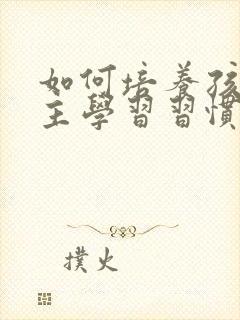 如何培養孩
主學習習慣
撲火